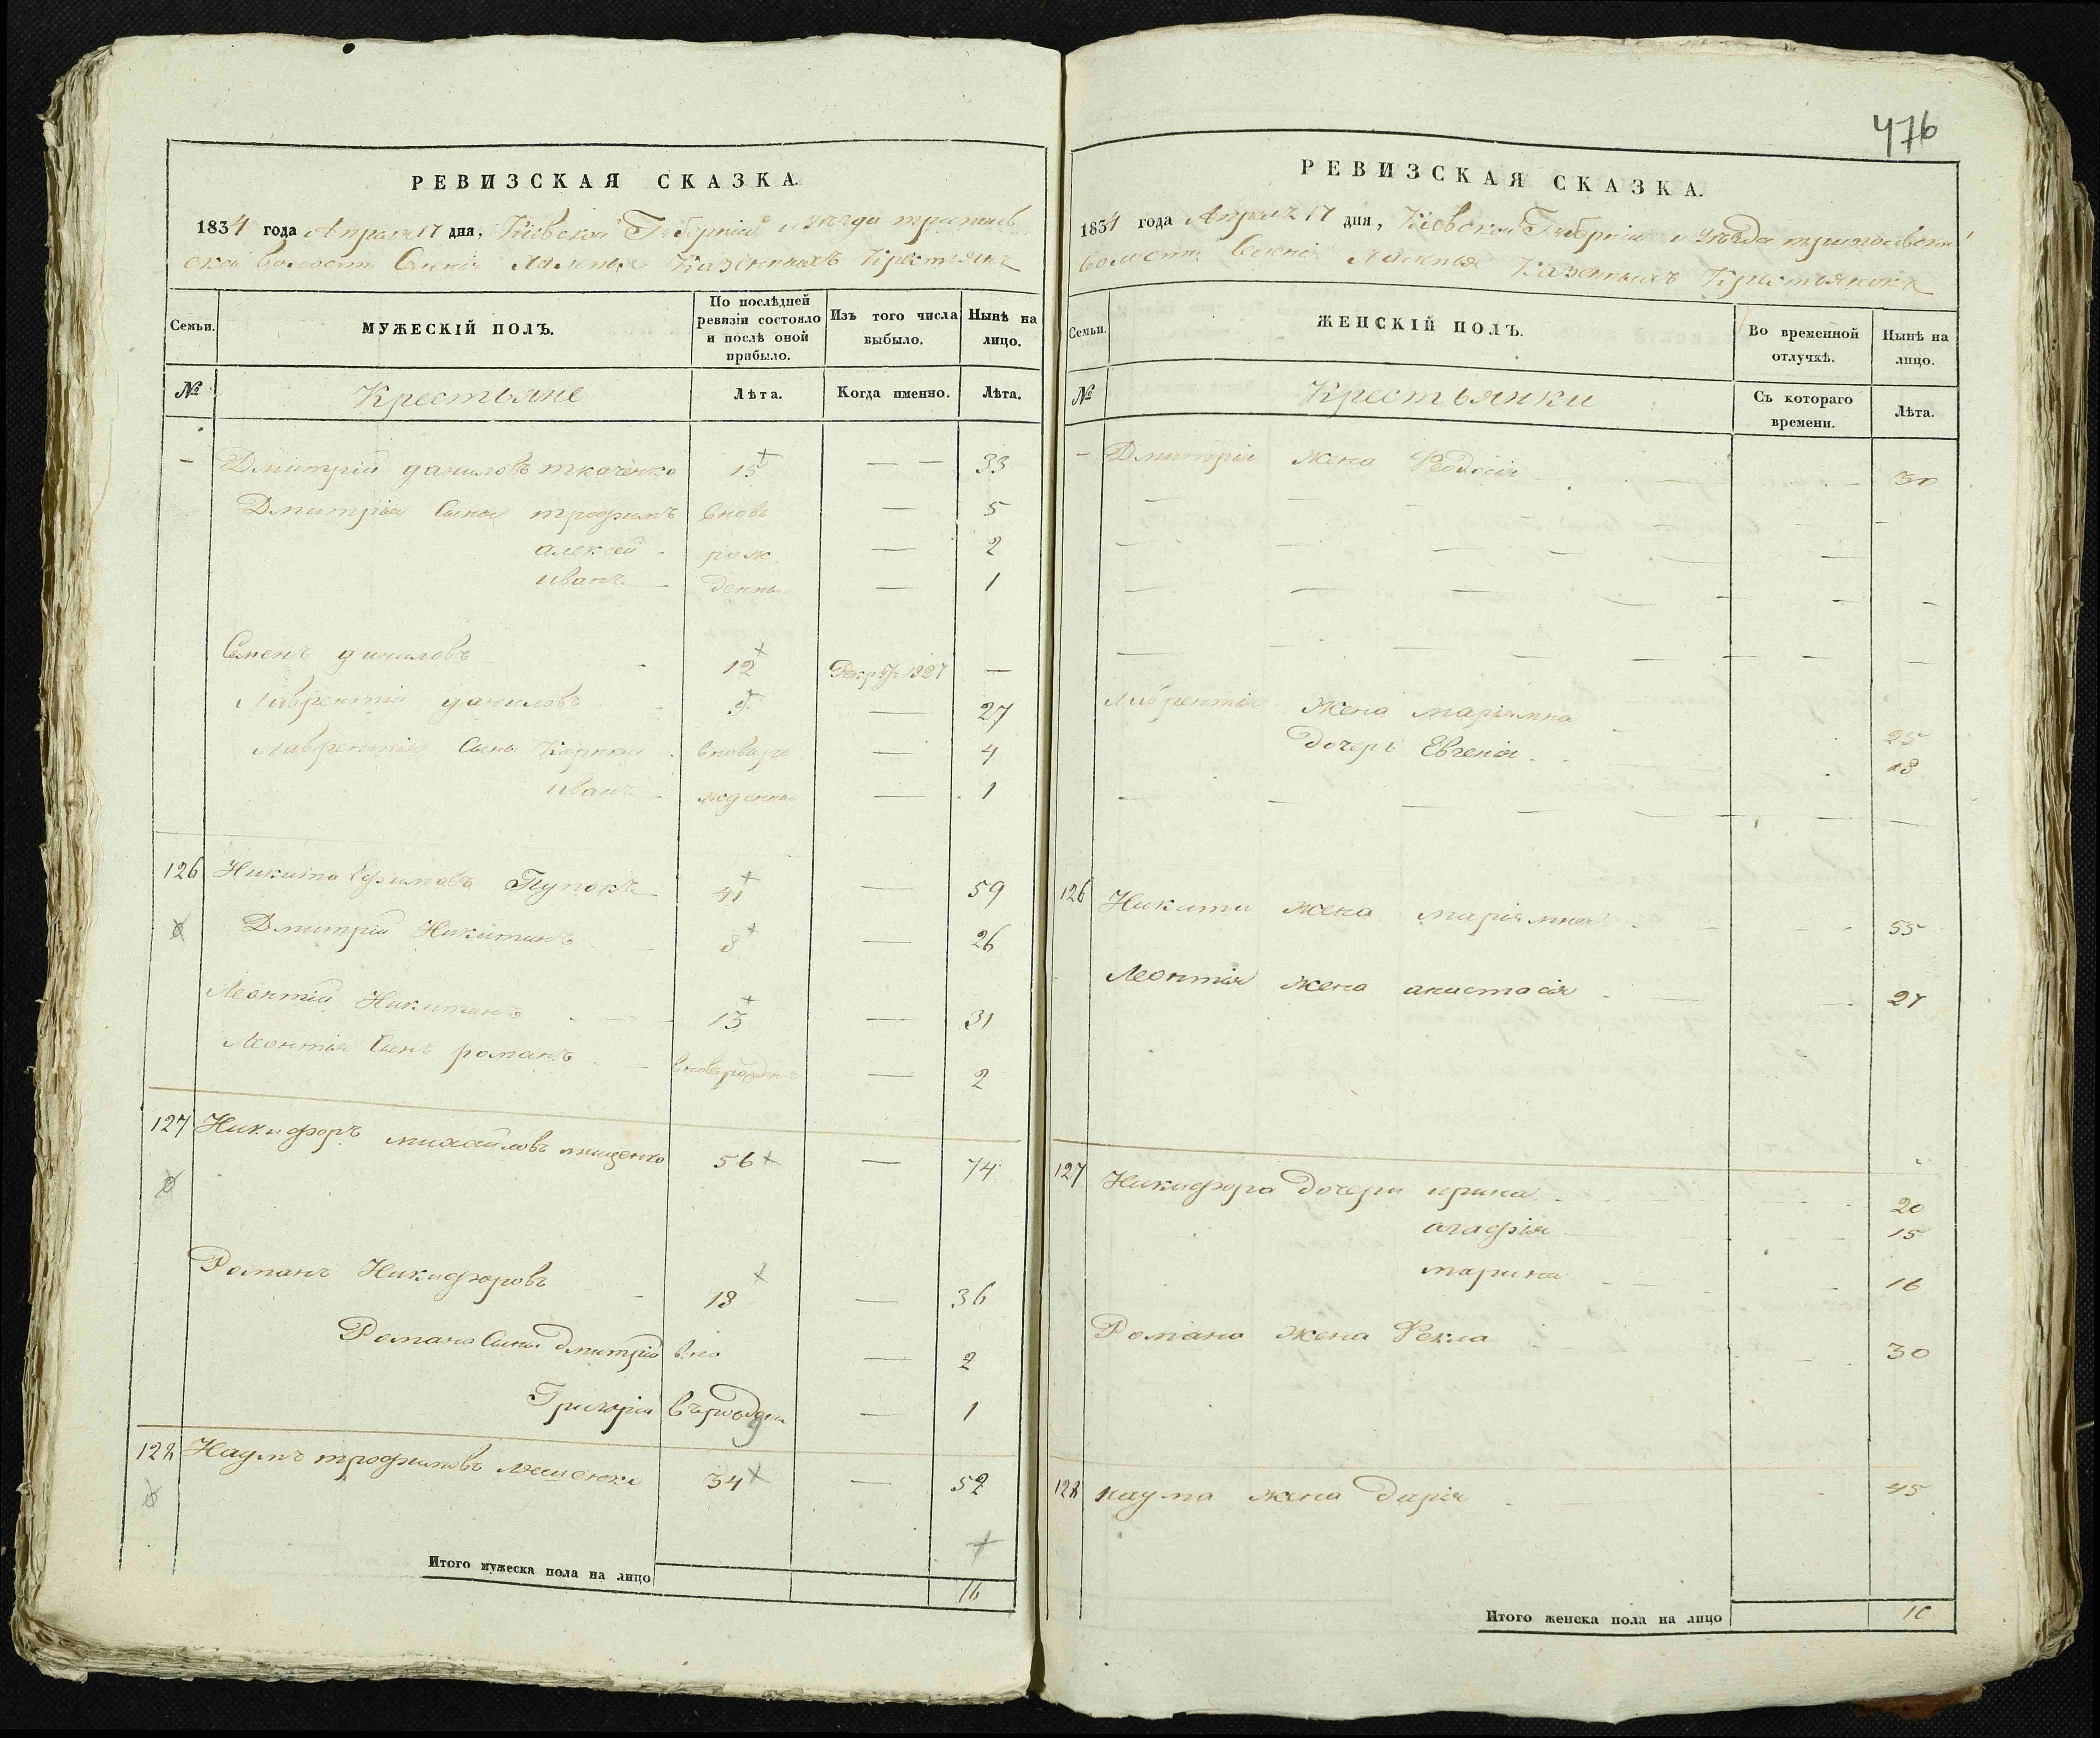 476
РЕВИЗСКАЯ СКАЗКА.
1834 года Апреля 17 дня, Кіевской Губерніи и уезда трипольс
ской волости Казенныхъ Крестьянъ
Семьи.
МУЖЕСКІЙ ПОЛЪ.
По послѣдней ревизіи состояло и послѣ оной прибыло.
Изъ того числа выбыло.
Нынѣ на лицо.
№
Крестьяне
Лѣта.
Когда именно.
Лѣта.
— Дмитрій даниловъ ткаченко 15 — — 33
Дмитрія Сыны трофимъ вновь — 5
алексей рож — 2
иванъ денны — 1
Семенъ даниловъ 12 1827 —
Лаврентій даниловъ 9 — 27
Лаврентія Сыны Корній вновь ро — 4
иванъ жденны — 1
126 Никита Ефимовъ Пупокъ 41 — 59
Дмитрій Никитинъ 8 — 26
Леонтій Никитинъ 13 — 31
Леонтія Сынъ романъ вноврожденъ — 2
127 Никифоръ михайловъ мищенко 56 — 74
Романъ Никифоровъ 18 — 36
Романа Сыны Дмитрій вно — 2
Григорій въ рожден — 1
128 Наумъ трофимовъ 34 — 52
Итого мужеска пола на лицо 16
РЕВИЗСКАЯ СКАЗКА.
1834 года Апреля 17 дня, Кіевской Губерніи и уезда трипольской
волости Казенныхъ Крестьянокъ
Семьи.
ЖЕНСКІЙ ПОЛЪ.
Во временной отлучкѣ.
Нынѣ на лицо.
№
Крестьянки
Съ котораго времени.
Лѣта.
— Дмитрія жена Феодосія 30
Лаврентія жена маріамна 25
дочерь Евгенія
126 Никиты жена маріамна 55
Леонтія жена анастасія 27
127 Никифора дочери ирина 20
агафія 15
марина 16
Романа жена Фекла 30
128 наума жена дарія 45
Итого женска пола на лицо 10